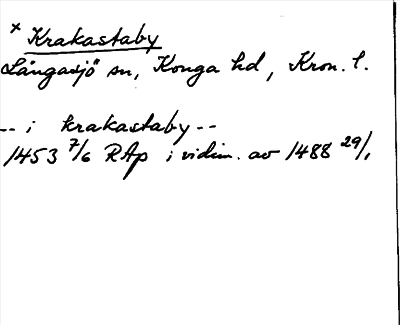 x Krakastaby
Långasjö sn, Konga hd, Kron. l.
-- i krakastaby --
1453 7/6 RAp i vidim. av 1488 29/1